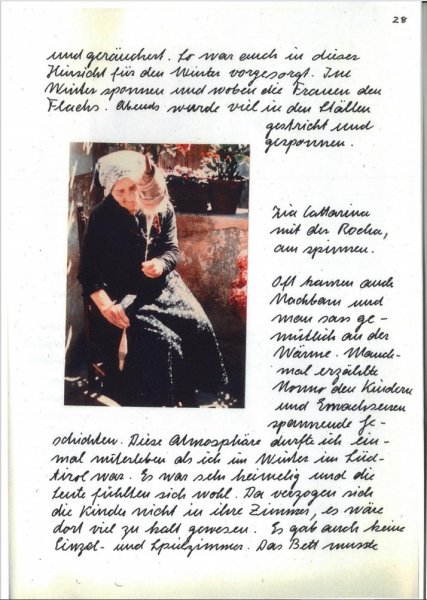 28
und geräuchert. So war auch in dieser
Hinsicht für den Winter vorgesorgt. Im
Winter sponnen und woben die Frauen den
Flachs. Abends wurde viel in den Ställen
gestrickt und
gesponnen.
Zia Cattarina
mit der Rocha,
am spinnen.
Oft kamen auch
Nachbarn und
man sass ge-
mütlich an der
Wärme. Manch-
mal erzählte
Nonno den Kindern
und Erwachsenen
spannende Ge-
schichten. Diese Atmosphäre durfte ich ein-
mal miterleben als ich im Winter im Süd-
tirol war. Es war sehr heimelig und die
Leute fühlten sich wohl. Da verzogen sich
die Kinder nicht in ihre Zimmer, es wäre
dort viel zu kalt gewesen. Es gab auch keine
Einzel- und Spielzimmer. Das Bett musste